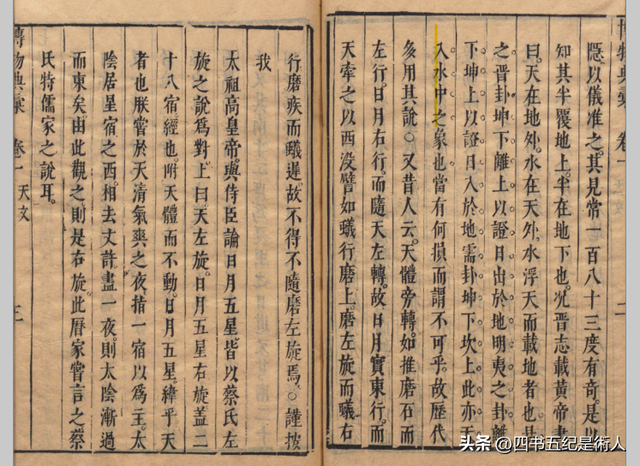 博物典彙 卷一 天文 二
隱以儀准之其見常一百八十三度有奇是以
知其半覆地上半在地下也况晉志載黃帝書
曰天在地外水在天外水浮天而載地者也易
之晋卦坤下離上以證日出於地明夷之卦離
下坤上以證日入於地需卦坤下坎上此亦天
入水中之象也當有何損而謂不可乎故歷代
多用其說○又昔人云天體旁轉如推磨石而
左行日月右行而隨天左轉故日月實東行而
天牽之以西沒譬如蟻行磨上磨左旋而蟻右
行磨疾而蟻遲故不得不隨磨左旋焉○謹按
我
太祖高皇帝與侍臣論日月五星皆以蔡氏左
旋之說爲對上曰天左旋日月五星右旋蓋二
十八宿經也附天體而不動日月五星緯乎天
者也朕嘗於天清氣爽之夜指一宿以爲主太
陰居星宿之西相去丈許盡一夜則太陰漸過
而東矣由此觀之則是右旋此曆家嘗言之蔡
氏特儒家之說耳
博物典彙 卷一 天文 三
头条 @四书五纪是術人